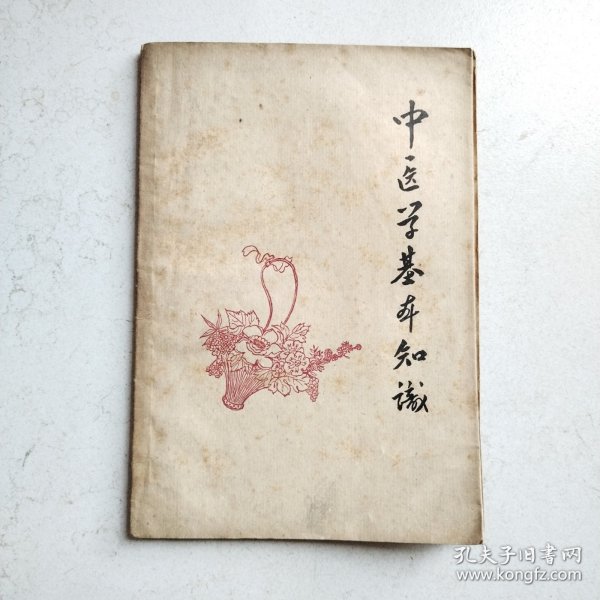 中医学基本知识
孔夫子旧书网
www.kongfz.com